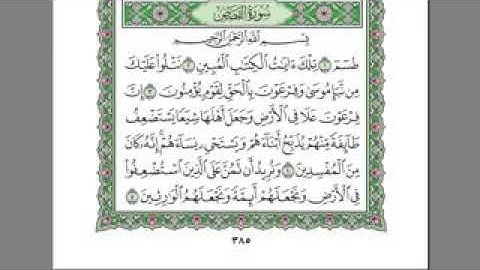 سُورَةُ القَصَصِ
بِسْمِ اللَّهِ الرَّحْمَٰنِ الرَّحِيمِ
طسٓمٓ ١ تِلْكَ ءَايَٰتُ ٱلْكِتَٰبِ ٱلْمُبِينِ ٢ نَتْلُوا۟ عَلَيْكَ
مِن نَّبَإِ مُوسَىٰ وَفِرْعَوْنَ بِٱلْحَقِّ لِقَوْمٍ يُؤْمِنُونَ ٣ إِنَّ
فِرْعَوْنَ عَلَا فِى ٱلْأَرْضِ وَجَعَلَ أَهْلَهَا شِيَعًا يَسْتَضْعِفُ
طَآئِفَةً مِّنْهُمْ يُذَبِّحُ أَبْنَآءَهُمْ وَيَسْتَحْىِۦ نِسَآءَهُمْ إِنَّهُۥ كَانَ
مِنَ ٱلْمُفْسِدِينَ ٤ وَنُرِيدُ أَن نَّمُنَّ عَلَى ٱلَّذِينَ ٱسْتُضْعِفُوا۟
فِى ٱلْأَرْضِ وَنَجْعَلَهُمْ أَئِمَّةً وَنَجْعَلَهُمُ ٱلْوَٰرِثِينَ ٥
٣٨٥